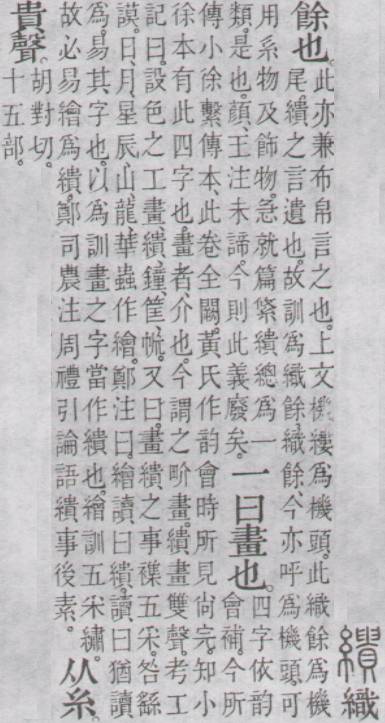 繢 織
餘也。此亦兼布帛言之也。上文機縷爲機頭。此織餘爲機
尾。繢之言遺也。故訓爲織餘。織餘、今亦呼爲機頭。可
用系物及飾物。急就篇。綮繢總爲一
類是也。顏、王注未諦。今則此義廢矣。
一曰畫也。四字依韵
會補。今所
傳小徐繫傳本、此卷全闕。黃氏作韵會時所見尙完。知小
徐本有此四字也。畫者、介也。今謂之畍畫。繢畫雙聲。考工
記曰。設色之工。畫繢鐘筐㡛。又曰。畫繢之事襍五采。咎繇
謨。日、月、星辰、山、龍、華蟲作繪。鄭注曰。繪讀曰繢。讀曰猶讀
爲。易其字也。以爲訓畫之字當作繢也。繪訓五采繡。
故必易繪爲繢。鄭司農注周禮引論語繢事後素。
从糸。
貴聲。胡對切。
十五部。